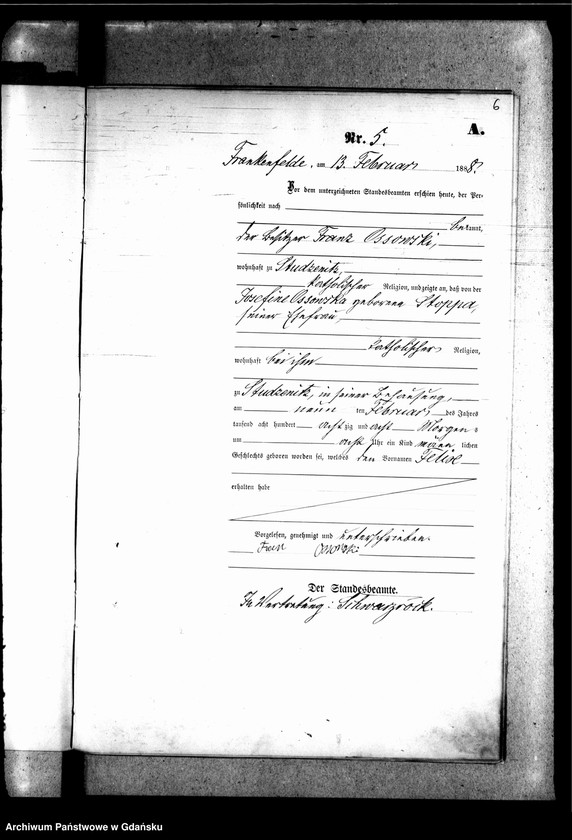 6
A.
Nr. 5.
Frankenfelde, am 13. Februar 1888.
Vor dem unterzeichneten Standesbeamten erschien heute, der Per-
sönlichkeit nach
bekannt,
der Besitzer Franz Ossowski,
wohnhaft zu Studzenitz,
katholischer Religion, und zeigte an, daß von der
Josefine Ossowska geborene Stoppa,
seiner Ehefrau,
katholischer Religion,
wohnhaft bei ihm
zu Studzenitz, in seiner Behausung,
am neun ten Februar des Jahres
tausend acht hundert acht zig und acht Morgens
um acht Uhr ein Kind männlichen
Geschlechts geboren worden sei, welches den Vornamen
erhalten habe
Vorgelesen, genehmigt und unterschrieben
Ossowski
Der Standesbeamte.
In Vertretung: Schwarzrock.
Archiwum Państwowe w Gdańsku